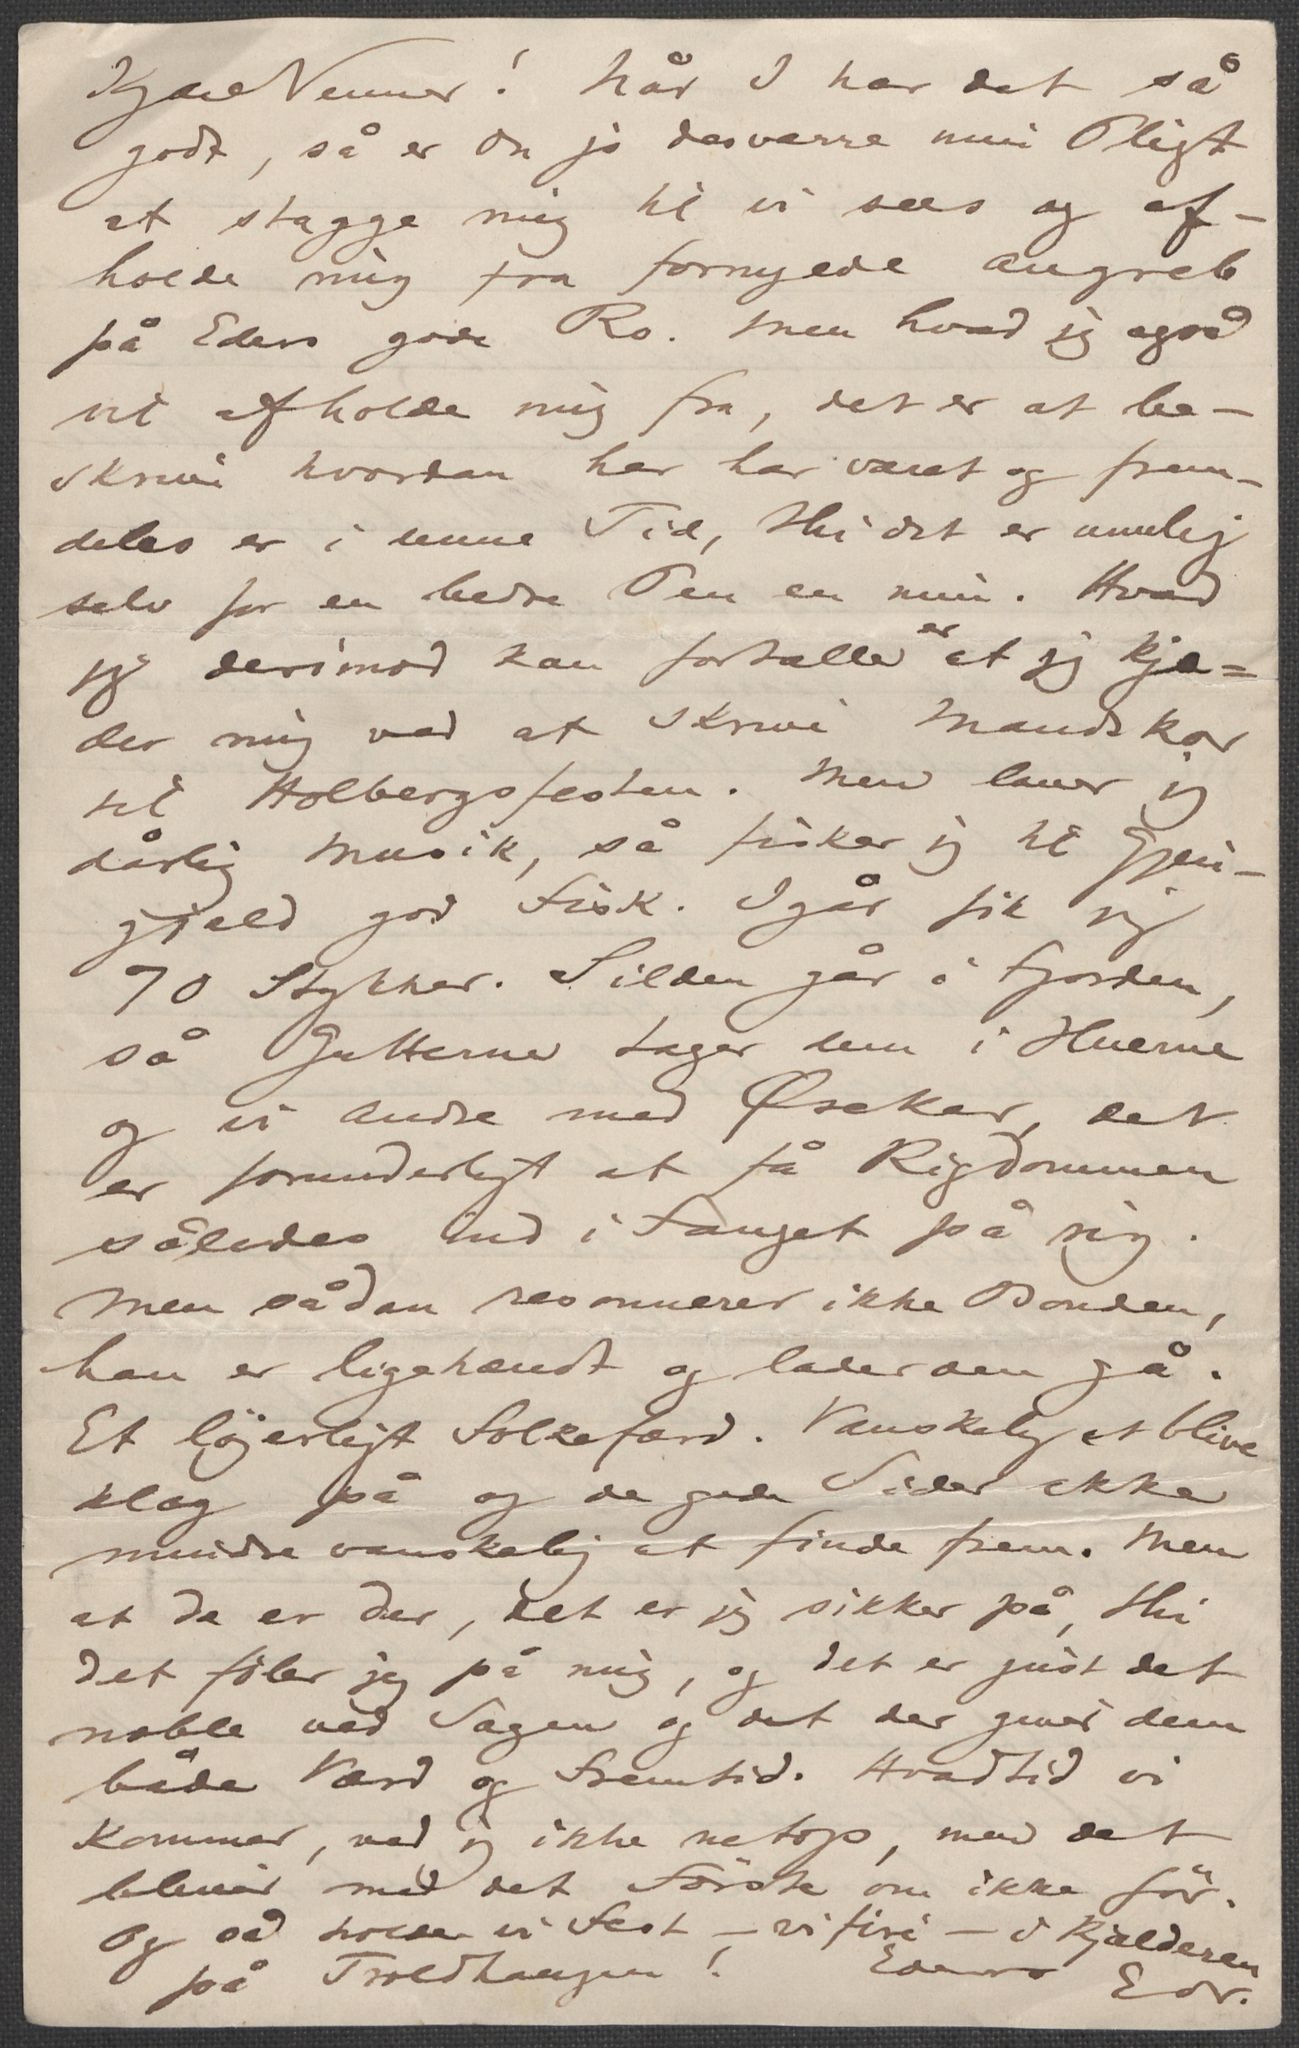 Kjære Venner! Når I har det så
godt, så er den jo desværre min Pligt
at stagge mig til vi sees og af-
holde mig fra fornyede Angreb
på Eders gode Ro. Men hvad jeg også
vil afholde mig fra, det er at be-
skrive hvordan her har været og frem-
deles er i denne Tid, thi det er umulig
selv for en bedre Pen en min. Hvad
jeg derimod kan fortælle er at jeg kje=
der mig ved at skrive Mandskor
til Holbergsfesten. Men laver jeg
dårlig Musik, så fisker jeg til Gjen-
gjæld god Fisk. Igår fik jeg
70 Stykker. Silden går i Fjorden,
så Gutterne tager dem i Huerne
og vi andre med Øsekar, det
er forunderligt at få Rigdommen
således ind i Fanget på sig.
Men sådan resonnerer ikke Bonden,
han er ligehændt og lader den gå.
Et løjerligt Folkefærd. Vanskelig at blive
klog på og de gode Sider ikke
mindre vanskelig at finde frem. Men
at de er der, det er jeg sikker på, thi
det föler jeg på mig, og det er just det
noble ved Sagen og det der giver dem
både Værd og Fremtid. Hvadtid vi
kommer, ved jeg ikke netop, men det
bliver med det Förste om ikke för.
Og så holder vi Fest – vi fire – i Kjælderen
på Troldhaugen! Eders Edv.